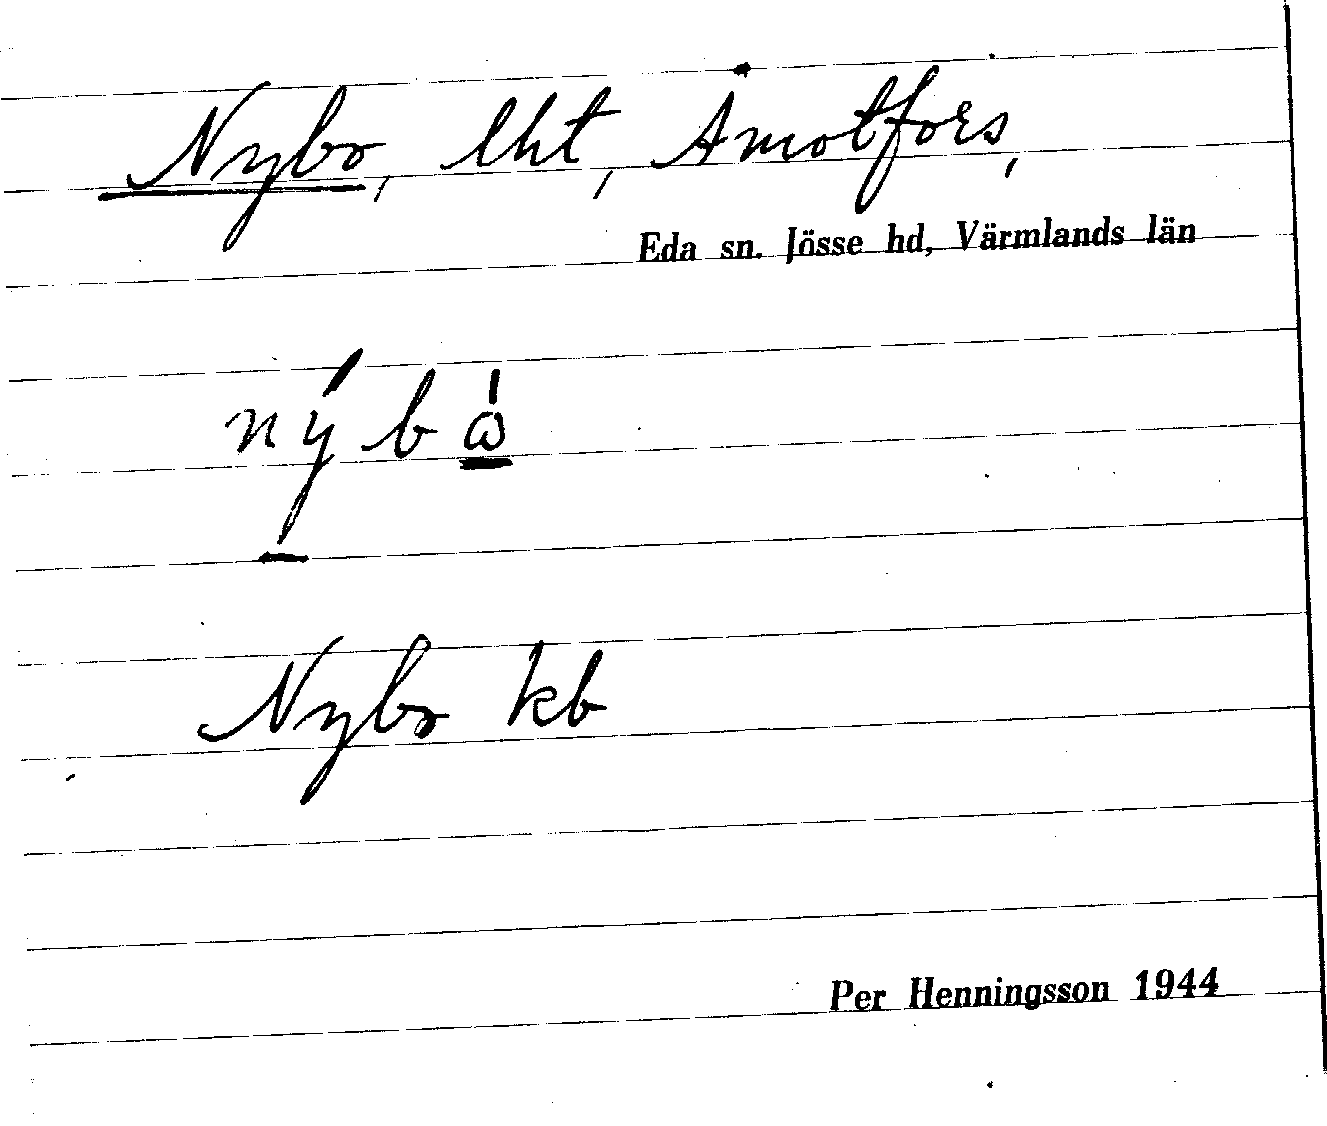 Nybo, lht, Åmotfors,
Eda sn. Jösse hd, Värmlands län
nýbὼ
Nybo kb
Per Henningsson 1944